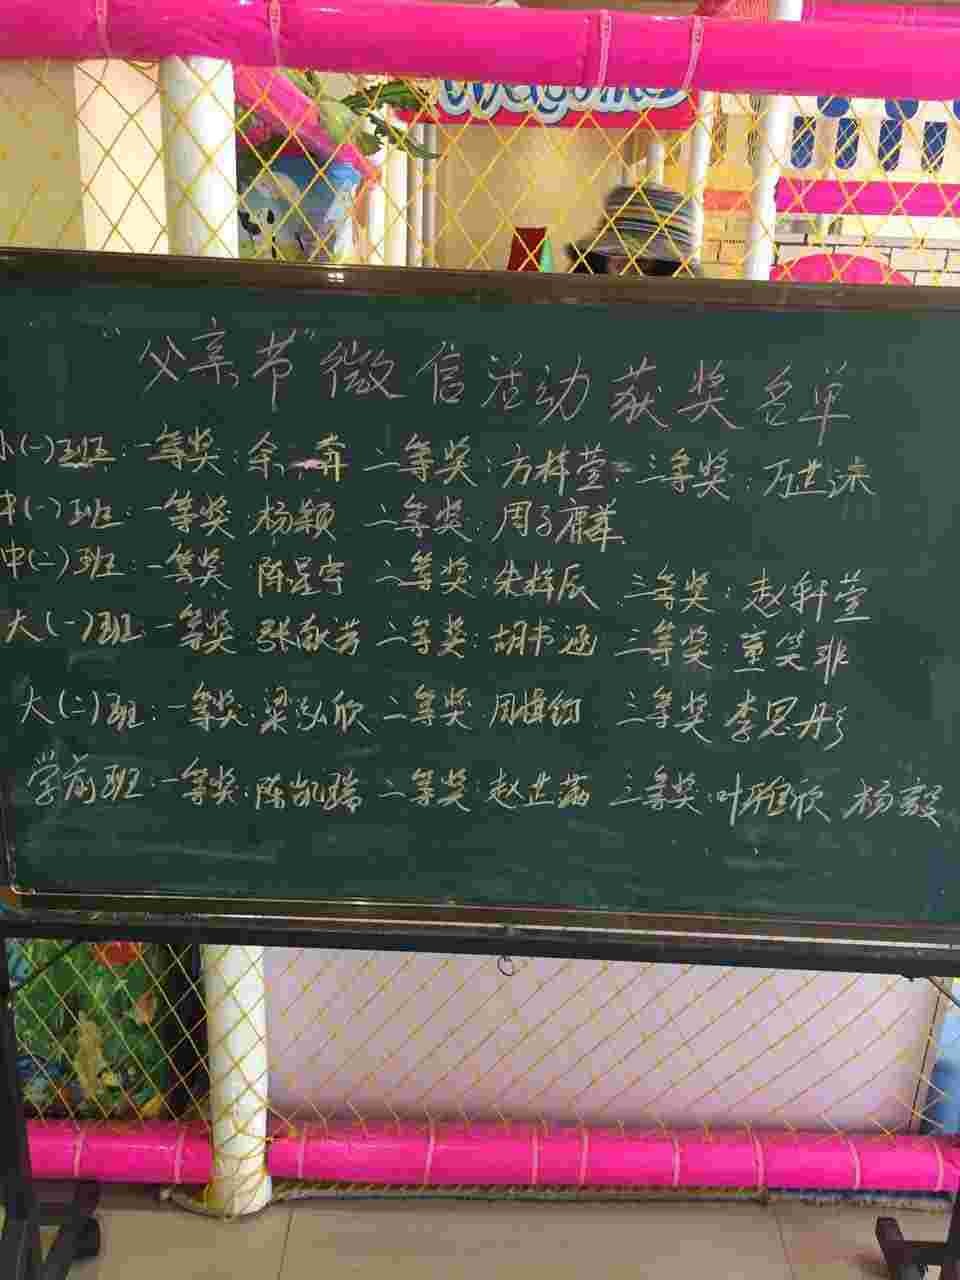 Welcome
"父亲节"微信活动获奖名单
小(一)班:一等奖:余 二等奖:方梓萱 三等奖:万芷沫
中(一)班:一等奖:杨颖 二等奖:周子麒
中(二)班:一等奖:陈星宇 二等奖:朱梓辰 三等奖:赵轩萱
大(一)班:一等奖:张歆芳 二等奖:胡书涵 三等奖:童笑非
大(二)班:一等奖:梁泓欣 二等奖:周 三等奖:李思彤
学前班:一等奖:陈凯瑞 二等奖:赵芷涵 三等奖:叶雅欣 杨毅